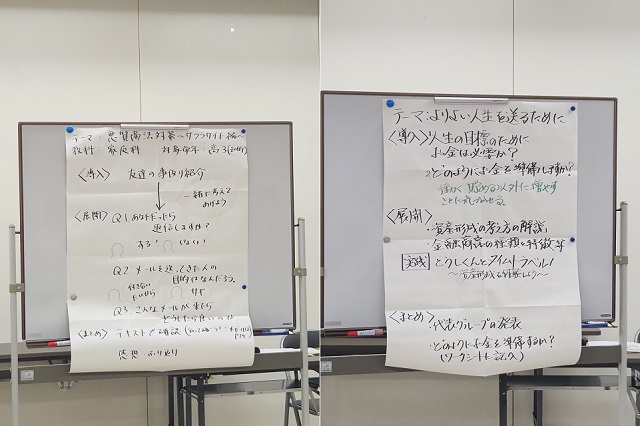 テーマ:悪質商法対策〜サクラサイト編〜
教科:家庭科 対象学年:高3
〈導入〉 友達の事例紹介
一緒に考えて
あげよう
〈展開〉 Q1 あなただったら
返信しますか?
する いない
Q2 メールを送ってきた人の
目的はなんだろう。
Q3 こんなメールが来たら
どうしたら良いのか
〈まとめ〉 テキストで確認
感想・ふり返り
テーマ:よりよい人生を送るために
〈導入〉人生の目標のために
お金は必要か?
どのようにお金を準備しますか?
働く、貯める以外に増やす
ことにもふれさせる。
〈展開〉
・資産形成の考え方の解説
・金融商品の種類と特徴等
とうしくんとタイムトラベル!
〜資産形成を体験しよう〜
〈まとめ〉
・代表グループの発表
・どのようにお金を準備するか?
(ワークシート記入)